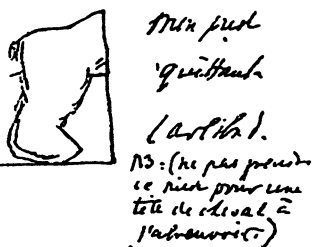 Mon pied
quittant
l'artiste).
NB: (ne pas prendre
ce pied pour une
tête de cheval à
l'abreuvoir.)